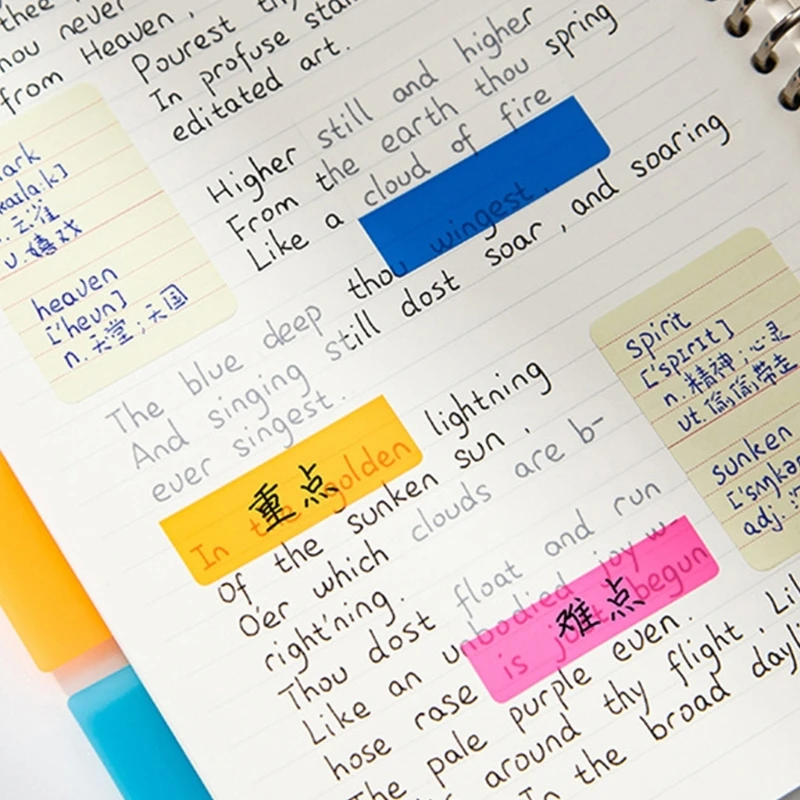 thee
Pourest th
hou never
In profuse sta
from Heaven,
editated art.
Higher still and higher
From the earth thou spring
Like a cloud of fire
The blue deep thou wingest,
And singing still dost soar, and soaring
ever singest.
In the golden lightning
Of the sunken sun,
O'er which clouds are b-
right'ning.
Thou dost float and run
Like an unbodied joy w
hose rase is just begun
The pale purple even.
around thy flight, Li
In the broad dayli
重点
难点
ark
kaɪlɑ:k]
云雀
v.嬉戏
heaven
['hevn]
n.天堂;天国
spirit
['spɪrɪt]
n.精神;心灵
vt.偷偷带走
sunken
['sʌŋkən
adj.